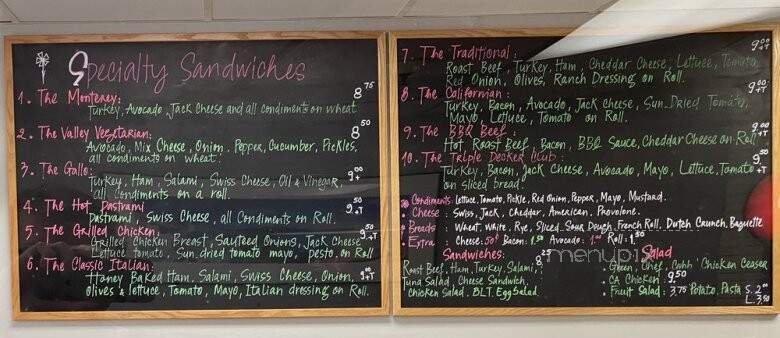 Specialty Sandwiches
1. The Monterey: 8 75
Turkey, Avocado, Jack Cheese and all condiments on wheat
2. The Valley Vegetarian: 8 50
Avocado, Mix Cheese, Onion, Pepper, Cucumber, Pickles,
all condiments on wheat.
3. The Gallo:
Turkey, Ham, Salami, Swiss Cheese, Oil & Vinegar,
all condiments on a roll.
4. The Hot Pastrami
Pastrami, Swiss Cheese, all Condiments on Roll.
5. The Grilled Chicken:
Grilled Chicken Breast, Sauteed Onions, Jack Cheese
Lettuce tomato, Sun dried tomato mayo, pesto on Roll
6. The Classic Italian:
Honey Baked Ham, Salami, Swiss Cheese, Onion,
Olives & lettuce, Tomato, Mayo, Italian dressing on Roll.
7. The Traditional: 9.00 +T
Roast Beef, Turkey, Ham, Cheddar Cheese, Lettuce, Tomato
Red Onion, Olives, Ranch Dressing on Roll.
8. The Californian: 9.00 +T
Turkey, Bacon, Avocado, Jack Cheese, Sun Dried Tomato,
Mayo, Lettuce, Tomato on Roll.
9. The BBQ Beef: 9.00 +T
Hot Roast Beef, Bacon, BBQ Sauce, Cheddar Cheese on Roll
10. The Triple Decker Club: 9.50 +T
Turkey, Bacon, Jack Cheese, Avocado, Mayo, Lettuce, Tomato
on sliced bread.
Condiments: Lettuce, Tomato, Pickle, Red Onion, Pepper, Mayo, Mustard.
Cheese: Swiss, Jack, Cheddar, American, Provolone.
Breads: Wheat, White, Rye, Sliced Sour Dough, French Roll, Dutch Crunch, Baguette
Extra: Cheese: 50¢ Bacon: Avocado: Roll:
Sandwiches: Salad
Roast Beef, Ham, Turkey, Salami, Green, Chef, Cobb, Chicken Ceaser
Tuna Salad, Cheese Sandwich, CA Chicken: 9.50
Chicken Salad, BLT, Egg Salad Fruit Salad: 3.75 Potato, Pasta S. L. 3.50
menupix